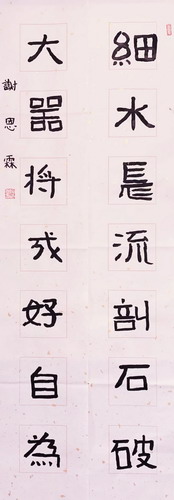 細水長流剖石破
大器将成好自為
謝恩霖